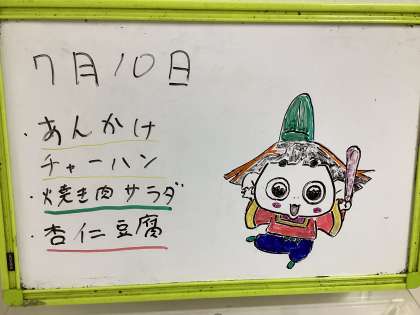 7月10日
・あんかけ
チャーハン
・焼き肉サラダ
・杏仁豆腐